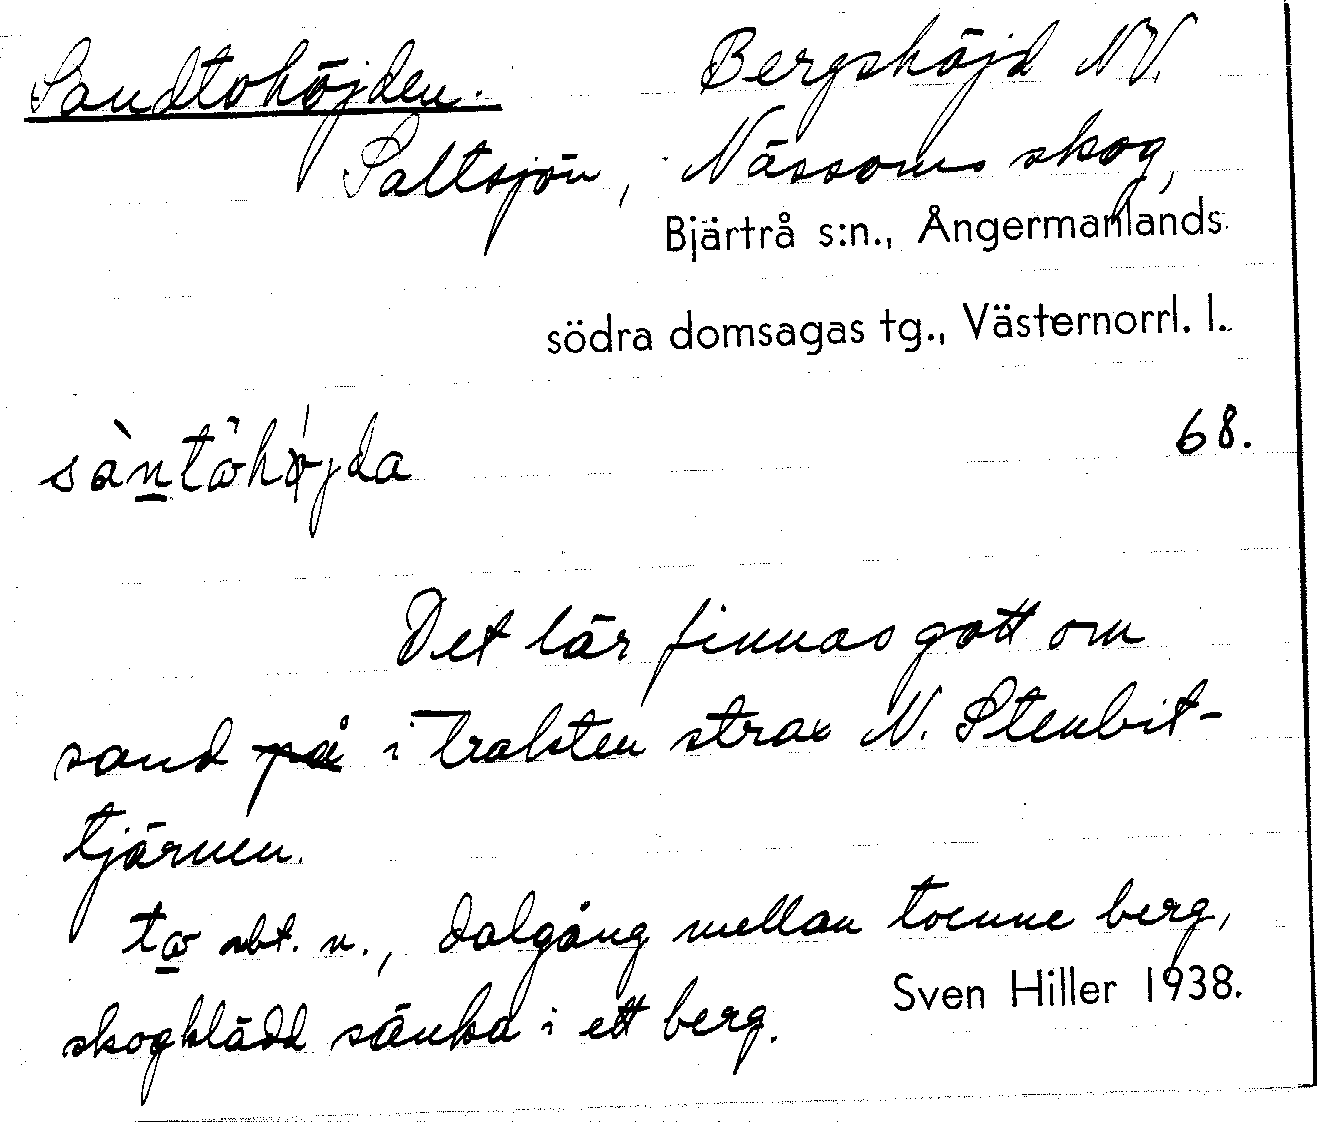 Sandtohöjden. Bergshöjd NV.
Saltsjön, Nässoms skog,
Bjärtrå s:n., Ångermanlands
södra domsagas tg., Västernorrl. l.
68.
Det lär finnas gott om
sand på i trakten strax N. Stenbit-
tjärnen.
sbt. n., dalgång mellan tvenne berg,
skogklädd sänka i ett berg.
Sven Hiller 1938.